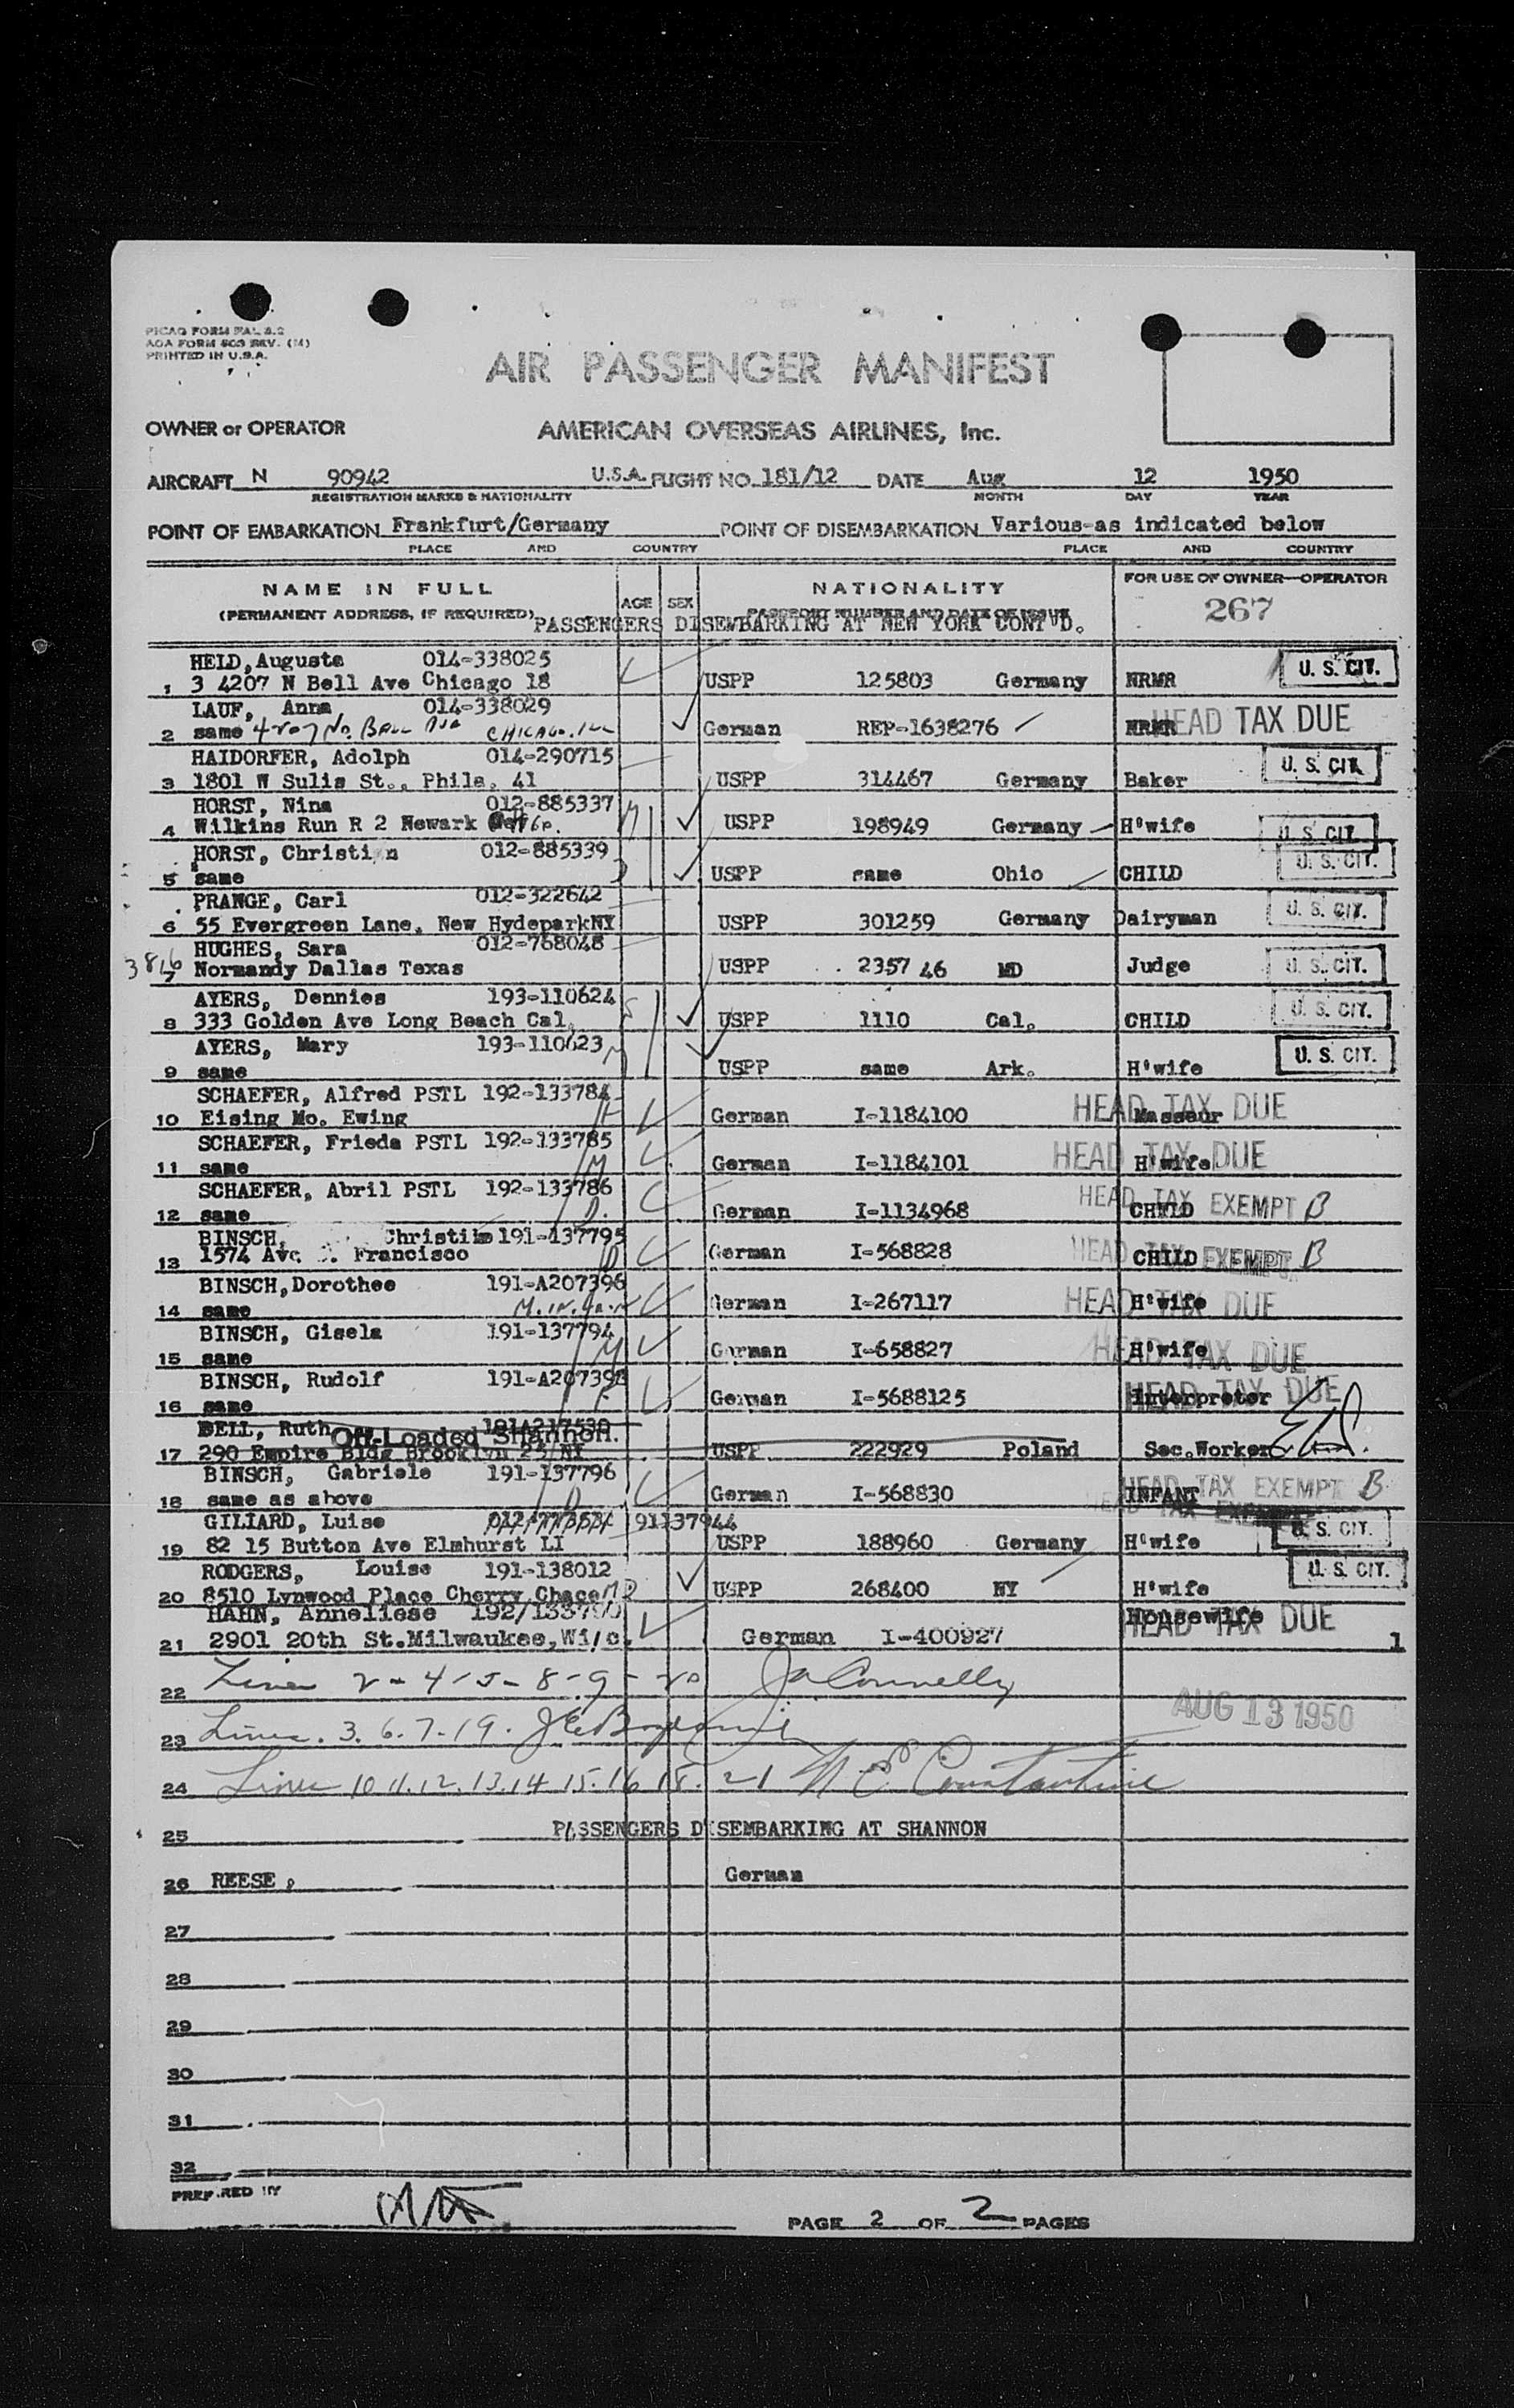 PICAO FORM FAL 2.2
AOA FORM 803 REV. (M)
PRINTED IN U.S.A.
AIR PASSENGER MANIFEST
OWNER or OPERATOR AMERICAN OVERSEAS AIRLINES, Inc.
AIRCRAFT N 90942 U.S.A. FLIGHT NO. 181/12 DATE Aug 12 1950
REGISTRATION MARKS & NATIONALITY MONTH DAY YEAR
POINT OF EMBARKATION Frankfurt/Germany POINT OF DISEMBARKATION Various-as indicated below
PLACE AND COUNTRY PLACE AND COUNTRY
NAME IN FULL NATIONALITY FOR USE OF OWNER—OPERATOR
(PERMANENT ADDRESS, IF REQUIRED) AGE SEX PASSPORT NUMBER AND DATE OF ISSUE 267
PASSENGERS DISEMBARKING AT NEW YORK CONT'D.
HELD, Auguste 014-338025 U. S. CIT.
1 3 4207 N Bell Ave Chicago 18 USPP 125803 Germany NRMR
LAUF, Anna 014-338029
2 same 4207 No. Bell Ave CHICAGO. ILL German REP-1638276 NRMR HEAD TAX DUE
HAIDORFER, Adolph 014-290715 U. S. CIT.
3 1801 W Sulis St., Phila. 41 USPP 314467 Germany Baker
HORST, Nina 012-885337
4 Wilkins Run R 2 Newark USPP 198949 Germany H'wife U. S. CIT.
HORST, Christian 012-885339 U. S. CIT.
5 same USPP same Ohio CHILD
PRANGE, Carl 012-322642 U. S. CIT.
6 55 Evergreen Lane, New HydeparkNY USPP 301259 Germany Dairyman
HUGHES, Sara 012-768048
3816 7 Normandy Dallas Texas USPP 2357 46 MD Judge U. S. CIT.
AYERS, Dennies 193-110624 U. S. CIT.
8 333 Golden Ave Long Beach Cal. USPP 1110 Cal. CHILD
AYERS, Mary 193-110623 U. S. CIT.
9 same USPP same Ark. H'wife
SCHAEFER, Alfred PSTL 192-133784
10 Eising Mo. Ewing German I-1184100 Masseur HEAD TAX DUE
SCHAEFER, Frieda PSTL 192-133785
11 same M German I-1184101 H'wife HEAD TAX DUE
SCHAEFER, Abril PSTL 192-133786
12 same D. German I-1134968 CHILD HEAD TAX EXEMPT B
BINSCH, 191-137795
13 1574 Ave Francisco German I-568828 CHILD HEAD TAX EXEMPT B
BINSCH, Dorothee 191-A207396
14 same German I-267117 H'wife HEAD TAX DUE
BINSCH, Gisela 191-137794
15 same M German I-658827 H'wife HEAD TAX DUE
BINSCH, Rudolf 191-A207398
16 same German I-5688125 Interpreter HEAD TAX DUE
BELL, Ruth 191A217530 Off-Loaded Shannon.
17 290 Empire Bldg Brooklyn 25/NY USPP 222929 Poland Soc.Worker
BINSCH, Gabriele 191-137796
18 same as above D German I-568830 INFANT HEAD TAX EXEMPT B
GILIARD, Luise 191137944 HEAD TAX EXEMPT U. S. CIT.
19 82 15 Button Ave Elmhurst LI USPP 188960 Germany H'wife
RODGERS, Louise 191-138012 U. S. CIT.
20 8510 Lynwood Place Cherry Chace MD USPP 268400 NY H'wife
HAHN, Anneliese Housewife HEAD TAX DUE
21 2901 20th St.Milwaukee, Wi/c. German I-400927 1
22 Lines 2-4-5-8-9-20 J Connelly
AUG 13 1950
23 Lines. 3. 6. 7. 19.
24 Lines 10 11. 12. 13. 14 15. 16 18. 21 N E Constantine
25 PASSENGERS DISEMBARKING AT SHANNON
26 REESE, German
27
28
29
30
31
32
PREPARED BY
PAGE 2 OF 2 PAGES